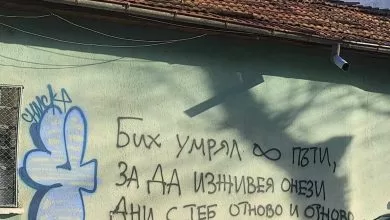 Бих умрял ∞ пъти,
за да изживея онези
дни с теб отново и отново